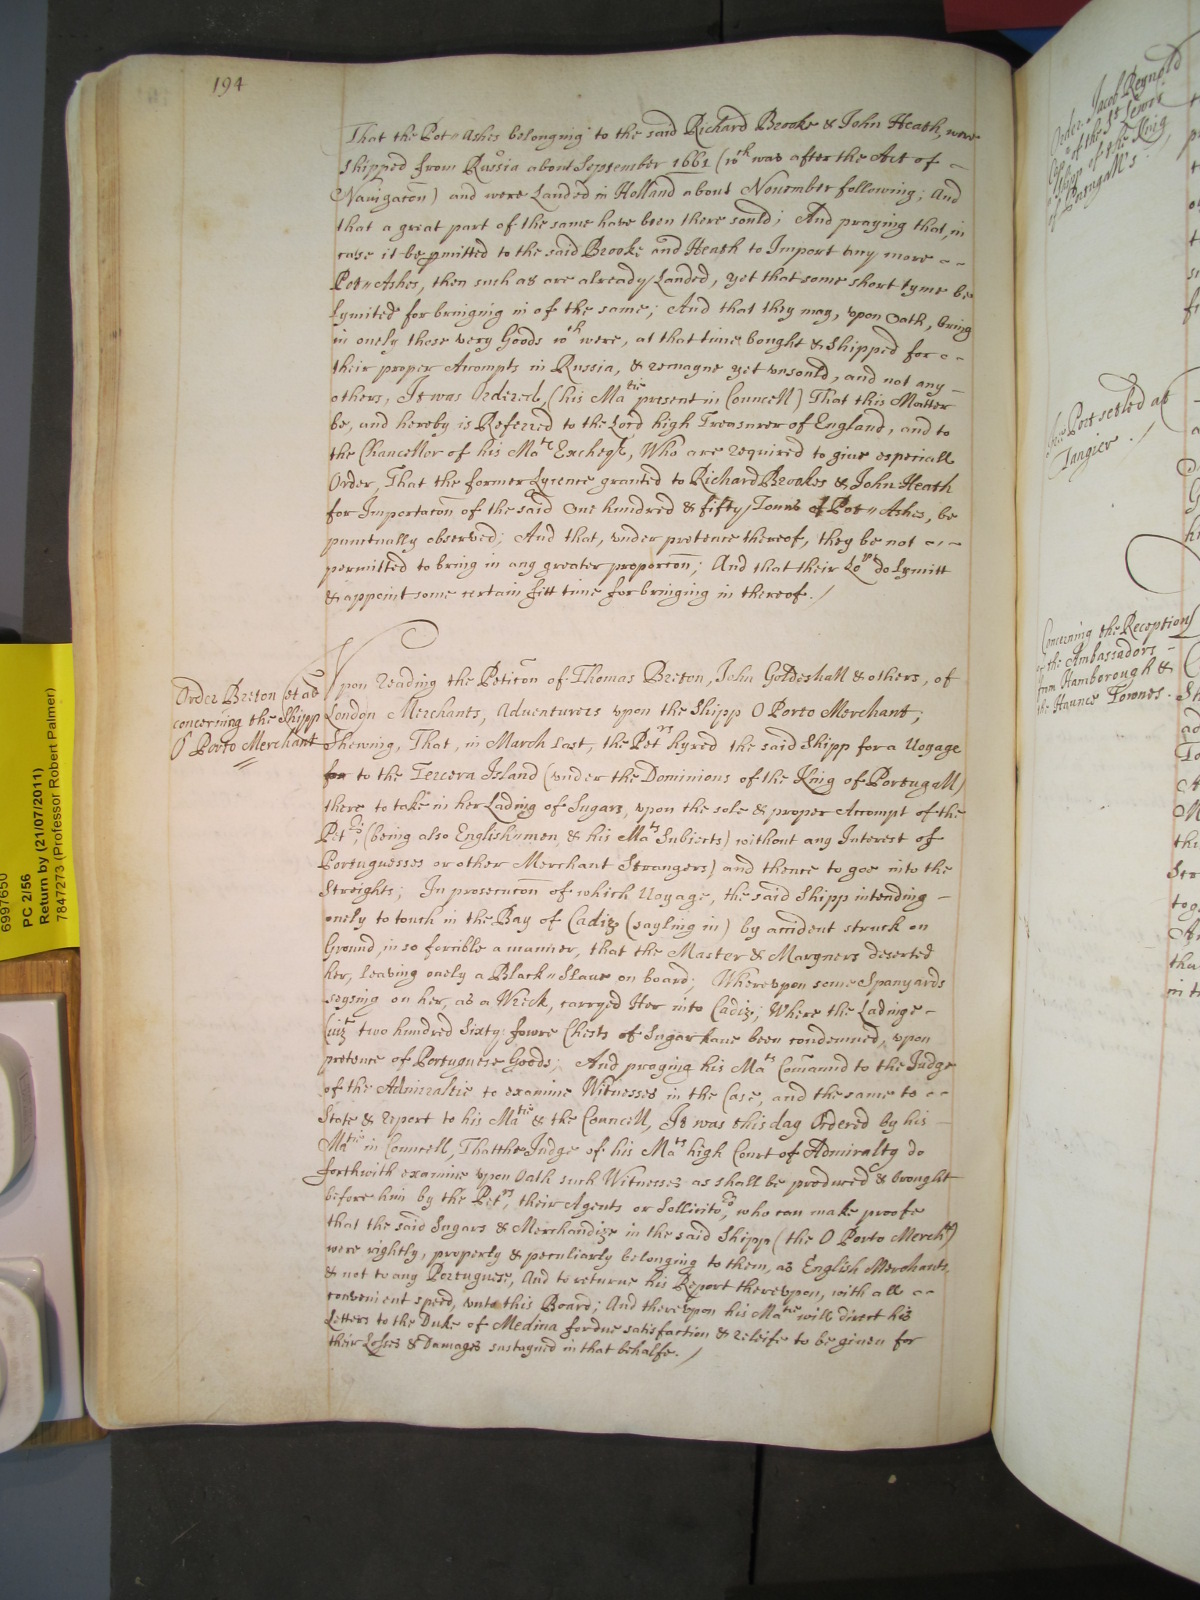 194
That the Pot-Ashes belonging to the said Richard Brooke & John Heath, were
shipped from Russia about September 1661 (wch was after the Act of -
Navigacõn) and were Landed in Holland about November following; And
that a great part of the same have been there sould; And praying that, in
case it be pmitted to the said Brooke and Heath to Import any more - -
Pot-Ashes, then such as are already Landed, yet that some short tyme be
Lymited for bringing in of the same; And that they may, vpon Oath, bring
in onely those very Goods wch were, at that time bought & Shipped for - -
their proper Accompts in Russia, & remayne yet vnsould, and not any -
others, It was Ordered, (his Matie present in Councell) That this Matter
be, and hereby is Referred to the Lord high Treasurer of England, and to
the Chancellor of his Mats Excheqr, Who are required to give especiall
Order, That the former Lycence granted to Richard Brookes & John Heath
for Importacõn of the said One hundred & fifty Tonns of Pot-Ashes, be
punctually observed; And that, vnder pretence thereof, they be not - - -
permitted to bring in any greater proporcõn; And that their Lopps do Lymitt
& appoint some certain fitt time for bringing in thereof. /
Order Breton et al
concerning the Shipp
O Porto Merchant
Vpon reading the Peticõn of Thomas Breton, John Goldeshall & others, of
London Merchants, Adventurers vpon the Shipp O Porto Merchant;
Shewing, That, in March Last, the Petrs hyred the said Shipp for a Uoyage
for to the Tercera Island (vnder the Dominions of the King of Portugall)
there to take in her Lading of Sugars, vpon the sole & proper Accompt of the
Petrs, (being also Englishmen & his Mats Subjects) without any Interest of
Portuguesses or other Merchant Strangers) and thence to goe into the
Streights; In prosecucõn of which Uoyage, the said Shipp intending -
onely to touch in the Bay of Cadiz (sayling in) by accident struck on
Ground, in so forcible a manner, that the Master & Maryners deserted
her, leaving onely a Black-Slave on board; Wherevpon some Spanyards
seysing on her, as a Wreck, carryed Her into Cadiz; Where the Ladinge -
(vizt two hundred Sixty fowre Chests of Sugar have been condemned, vpon
pretence of Portuguese Goods; And praying his Mats Com̃annd to the Judge
of the Admiraltie to examine Witnesses in the Case, and the same to - -
State & report to his Matie & the Councell, It was this day Ordered by his -
Matie in Councell, That the Judge of his Mats high Court of Admiralty do
forthwith examine vpon Oath such Witnesses as shall be produced & brought
before him by the Petrs, their Agents or Sollicitors, who can make proofe
that the said Sugars & Merchandize in the said Shipp (the O Porto Mercht)
were rightly, properly & peculiarly belonging to them, as English Merchants,
& not to any Portuguese, And to returne his Report therevpon, with all - -
convenient speed, vnto this Board; And therevpon his Matie will direct his
Letters to the Duke of Medina for due satisfaction & releife to be given for
their Losses & Damages sustayned in that behalfe. /
Order Jacob Reynold
of the St Lewis
of the King
Port setled at
Tangier. /
Concerning the Reception
of the Ambassadors -
from Hamborough &
the Haunce Townes.
PC 2/56
Return by (21/07/2011)
7847273 (Professor Robert Palmer)